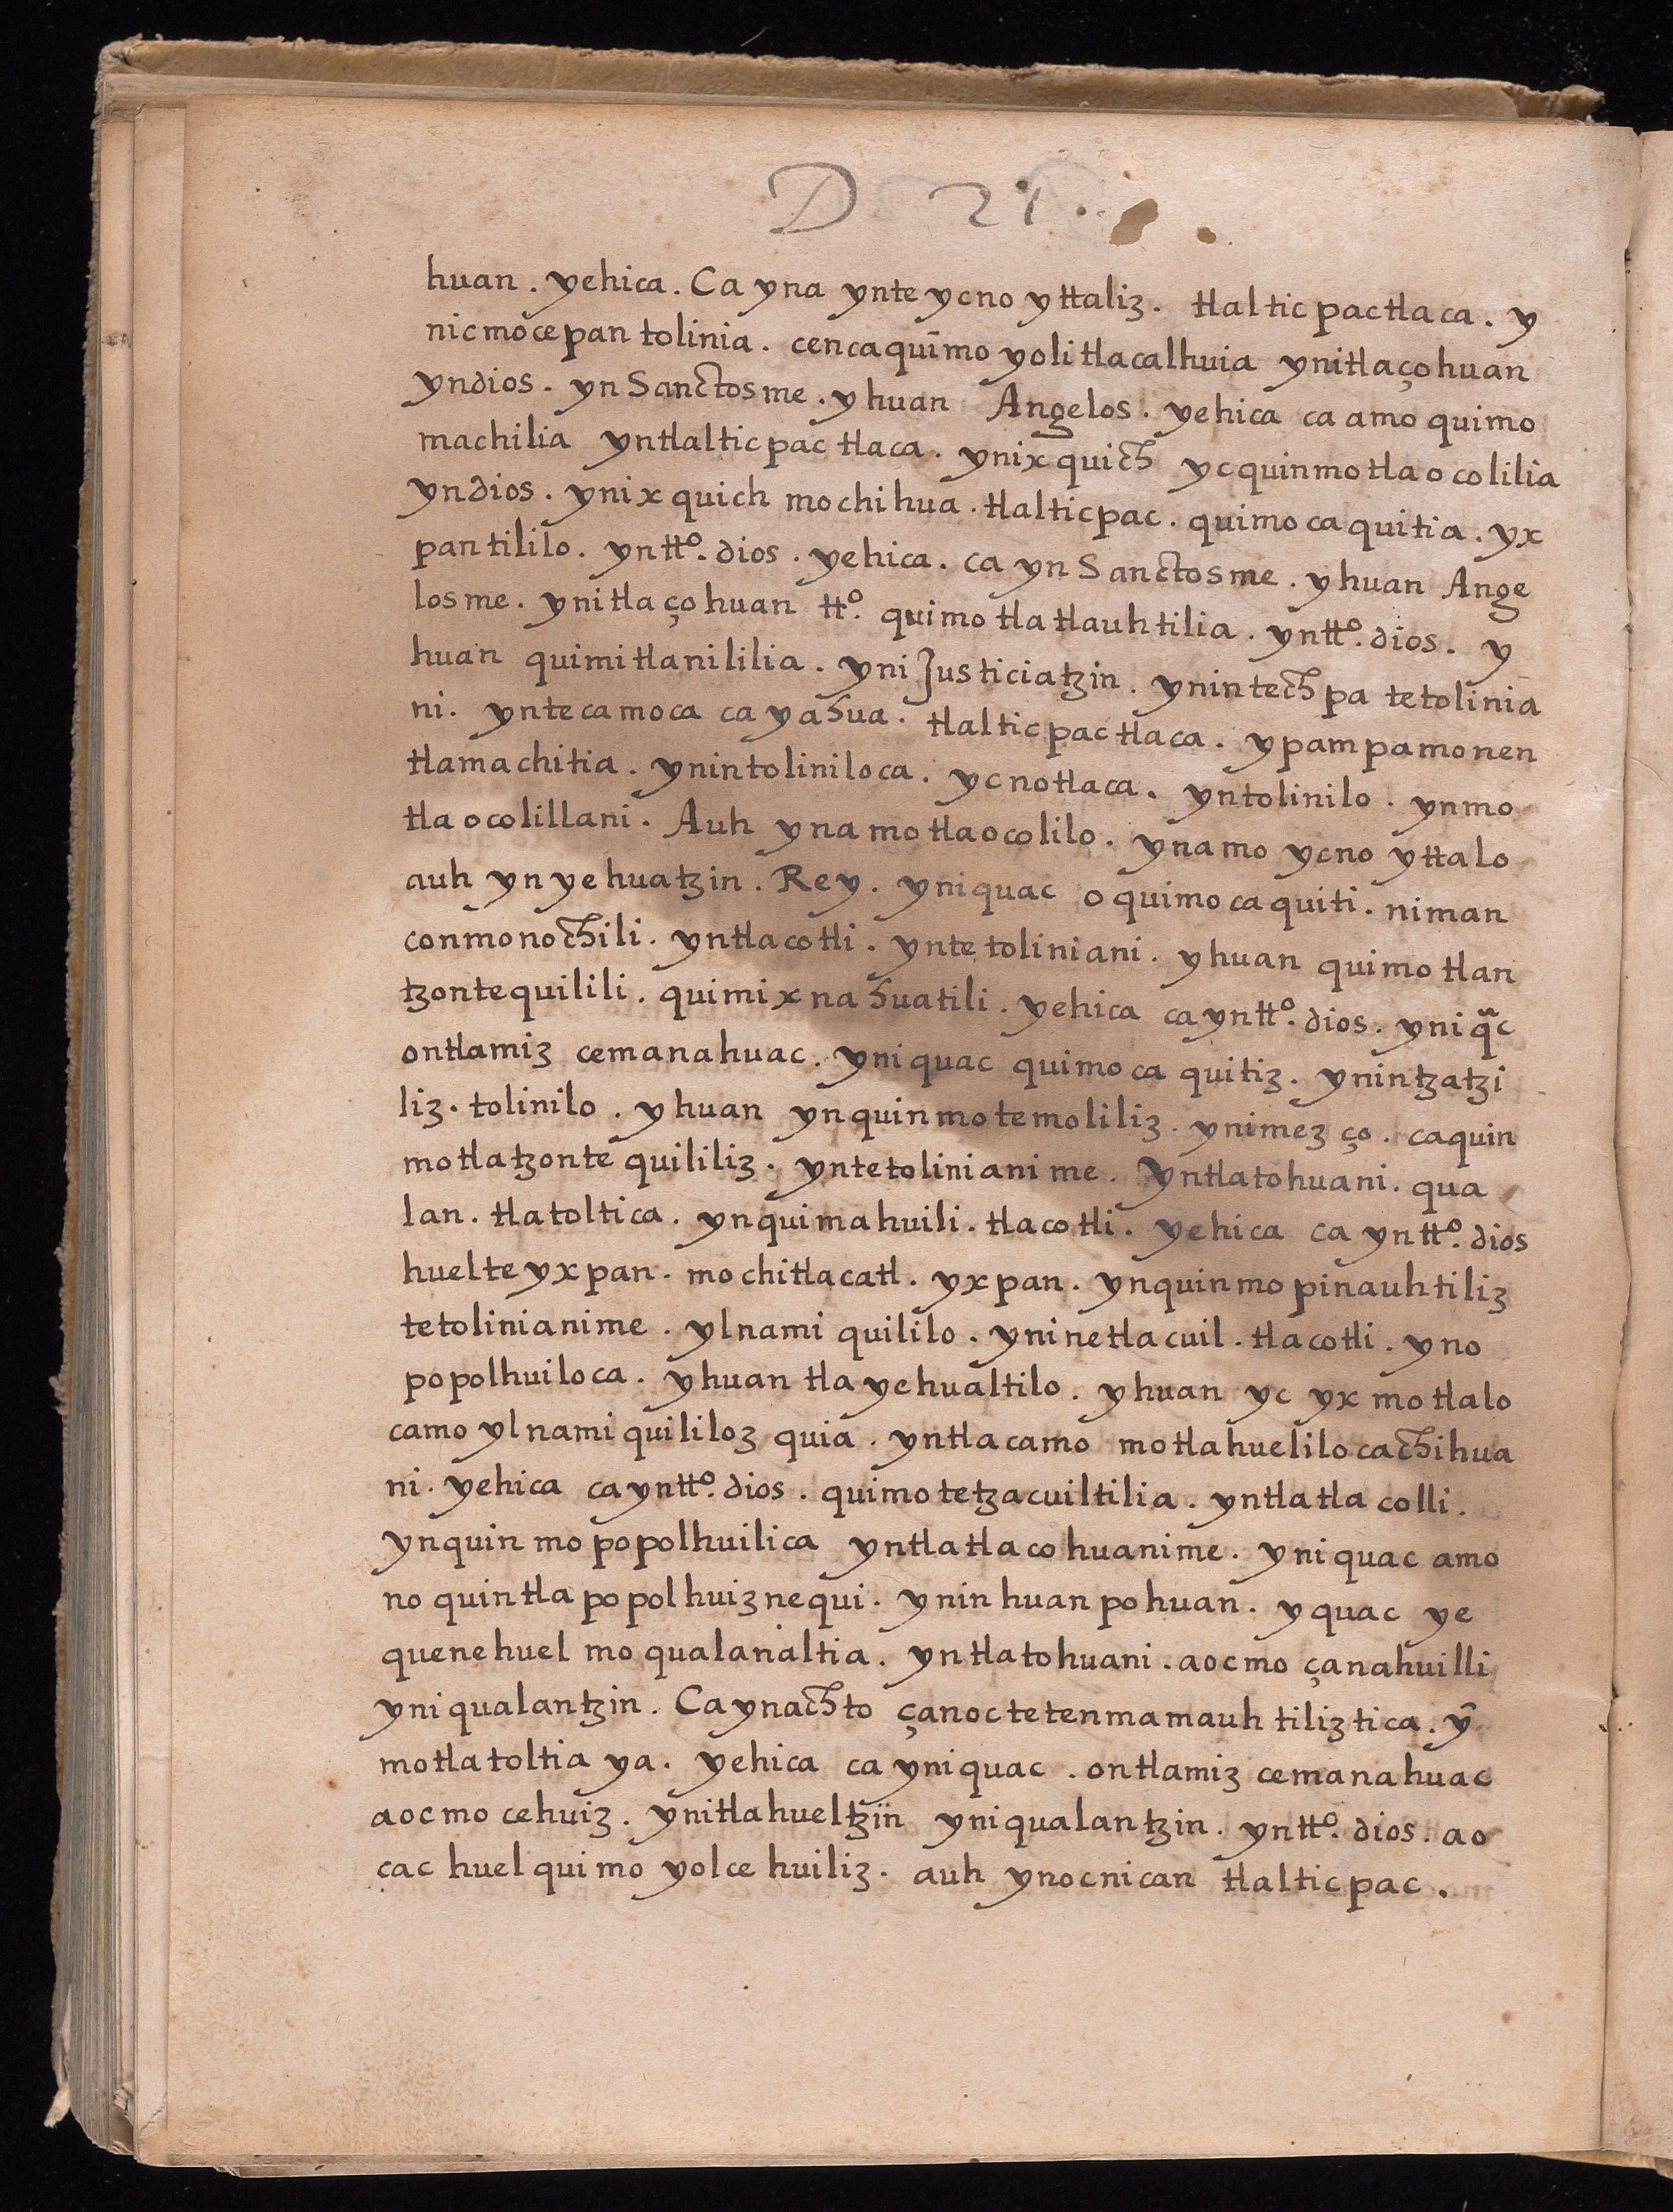 D 21.
huan. yehica. Ca yna ynte ycno yttaliz. tlaltic pactlaca. y
nic mocepan tolinia. cenca quīmo yolitlacalhuia ynitlaçohuan
yndios. yn Sanctosme. yhuan Angelos. yehica ca amo quimo
machilia yntlalticpac tlaca. ynixquich yc quinmotlaocolilia
yndios. ynixquich mochihua. tlalticpac. quimocaquitia. yx
pantililo. yntto. dios. yehica. ca yn Sanctosme. yhuan Ange
losme. ynitlaçohuan tto. quimotlatlauhtilia. yntto. dios. y
huan quimitlanililia. yni Justiciatzin. ynintechpa tetolinia
ni. yntecamoca cayahua. tlalticpactlaca. ypampa monen
tlamachitia. ynintoliniloca. ycnotlaca. yntolinilo. ynmo
tlaocolillani. Auh ynamotlaocolilo. ynamo ycno yttalo
auh yn yehuatzin. Rey. yniquac oquimocaquiti. niman
conmonochili. yntlacotli. yntetoliniani. yhuan quimotlan
tzontequilili. quimixnahuatili. yehica ca yntto. dios. yniq̄c
ontlamiz cemanahuac. yniquac quimocaquitiz. ynintzatzi
liz. tolinilo. yhuan ynquinmotemoliliz. ynimezço. caquin
motlatzontequililiz. yntetolinianime. Yntlatohuani. qua
lan. tlatoltica. ynquimahuili. tlacotli. yehica ca yntto. dios
huelteyxpan. mochitlacatl. yxpan. ynquinmopinauhtiliz
tetolinianime. ylnamiquililo. yninetlacuil. tlacotli. yno
popolhuiloca. yhuan tlayehualtilo. yhuan yc yxmotlalo
camo ylnamiquililozquia. yntlacamo motlahuelilocachihua
ni. yehica ca yntto. dios. quimotetzacuiltilia. yntlatlacolli.
ynquinmopopolhuilica yntlatlacohuanime. yniquac amo
no quintlapopolhuiznequi. yninhuanpohuan. yquac ye
quenehuel moqualanaltia. yntlatohuani. aocmo çanahuilli
yniqualantzin. Ca ynachto çanoctetenmamauhtiliztica. ȳ
motlatoltia ya. yehica ca yniquac. ontlamiz cemanahuac
aocmo cehuiz. ynitlahueltzin yniqualantzin. yntto. dios. ao
cac huel quimoyolcehuiliz. auh ynocnican tlalticpac.